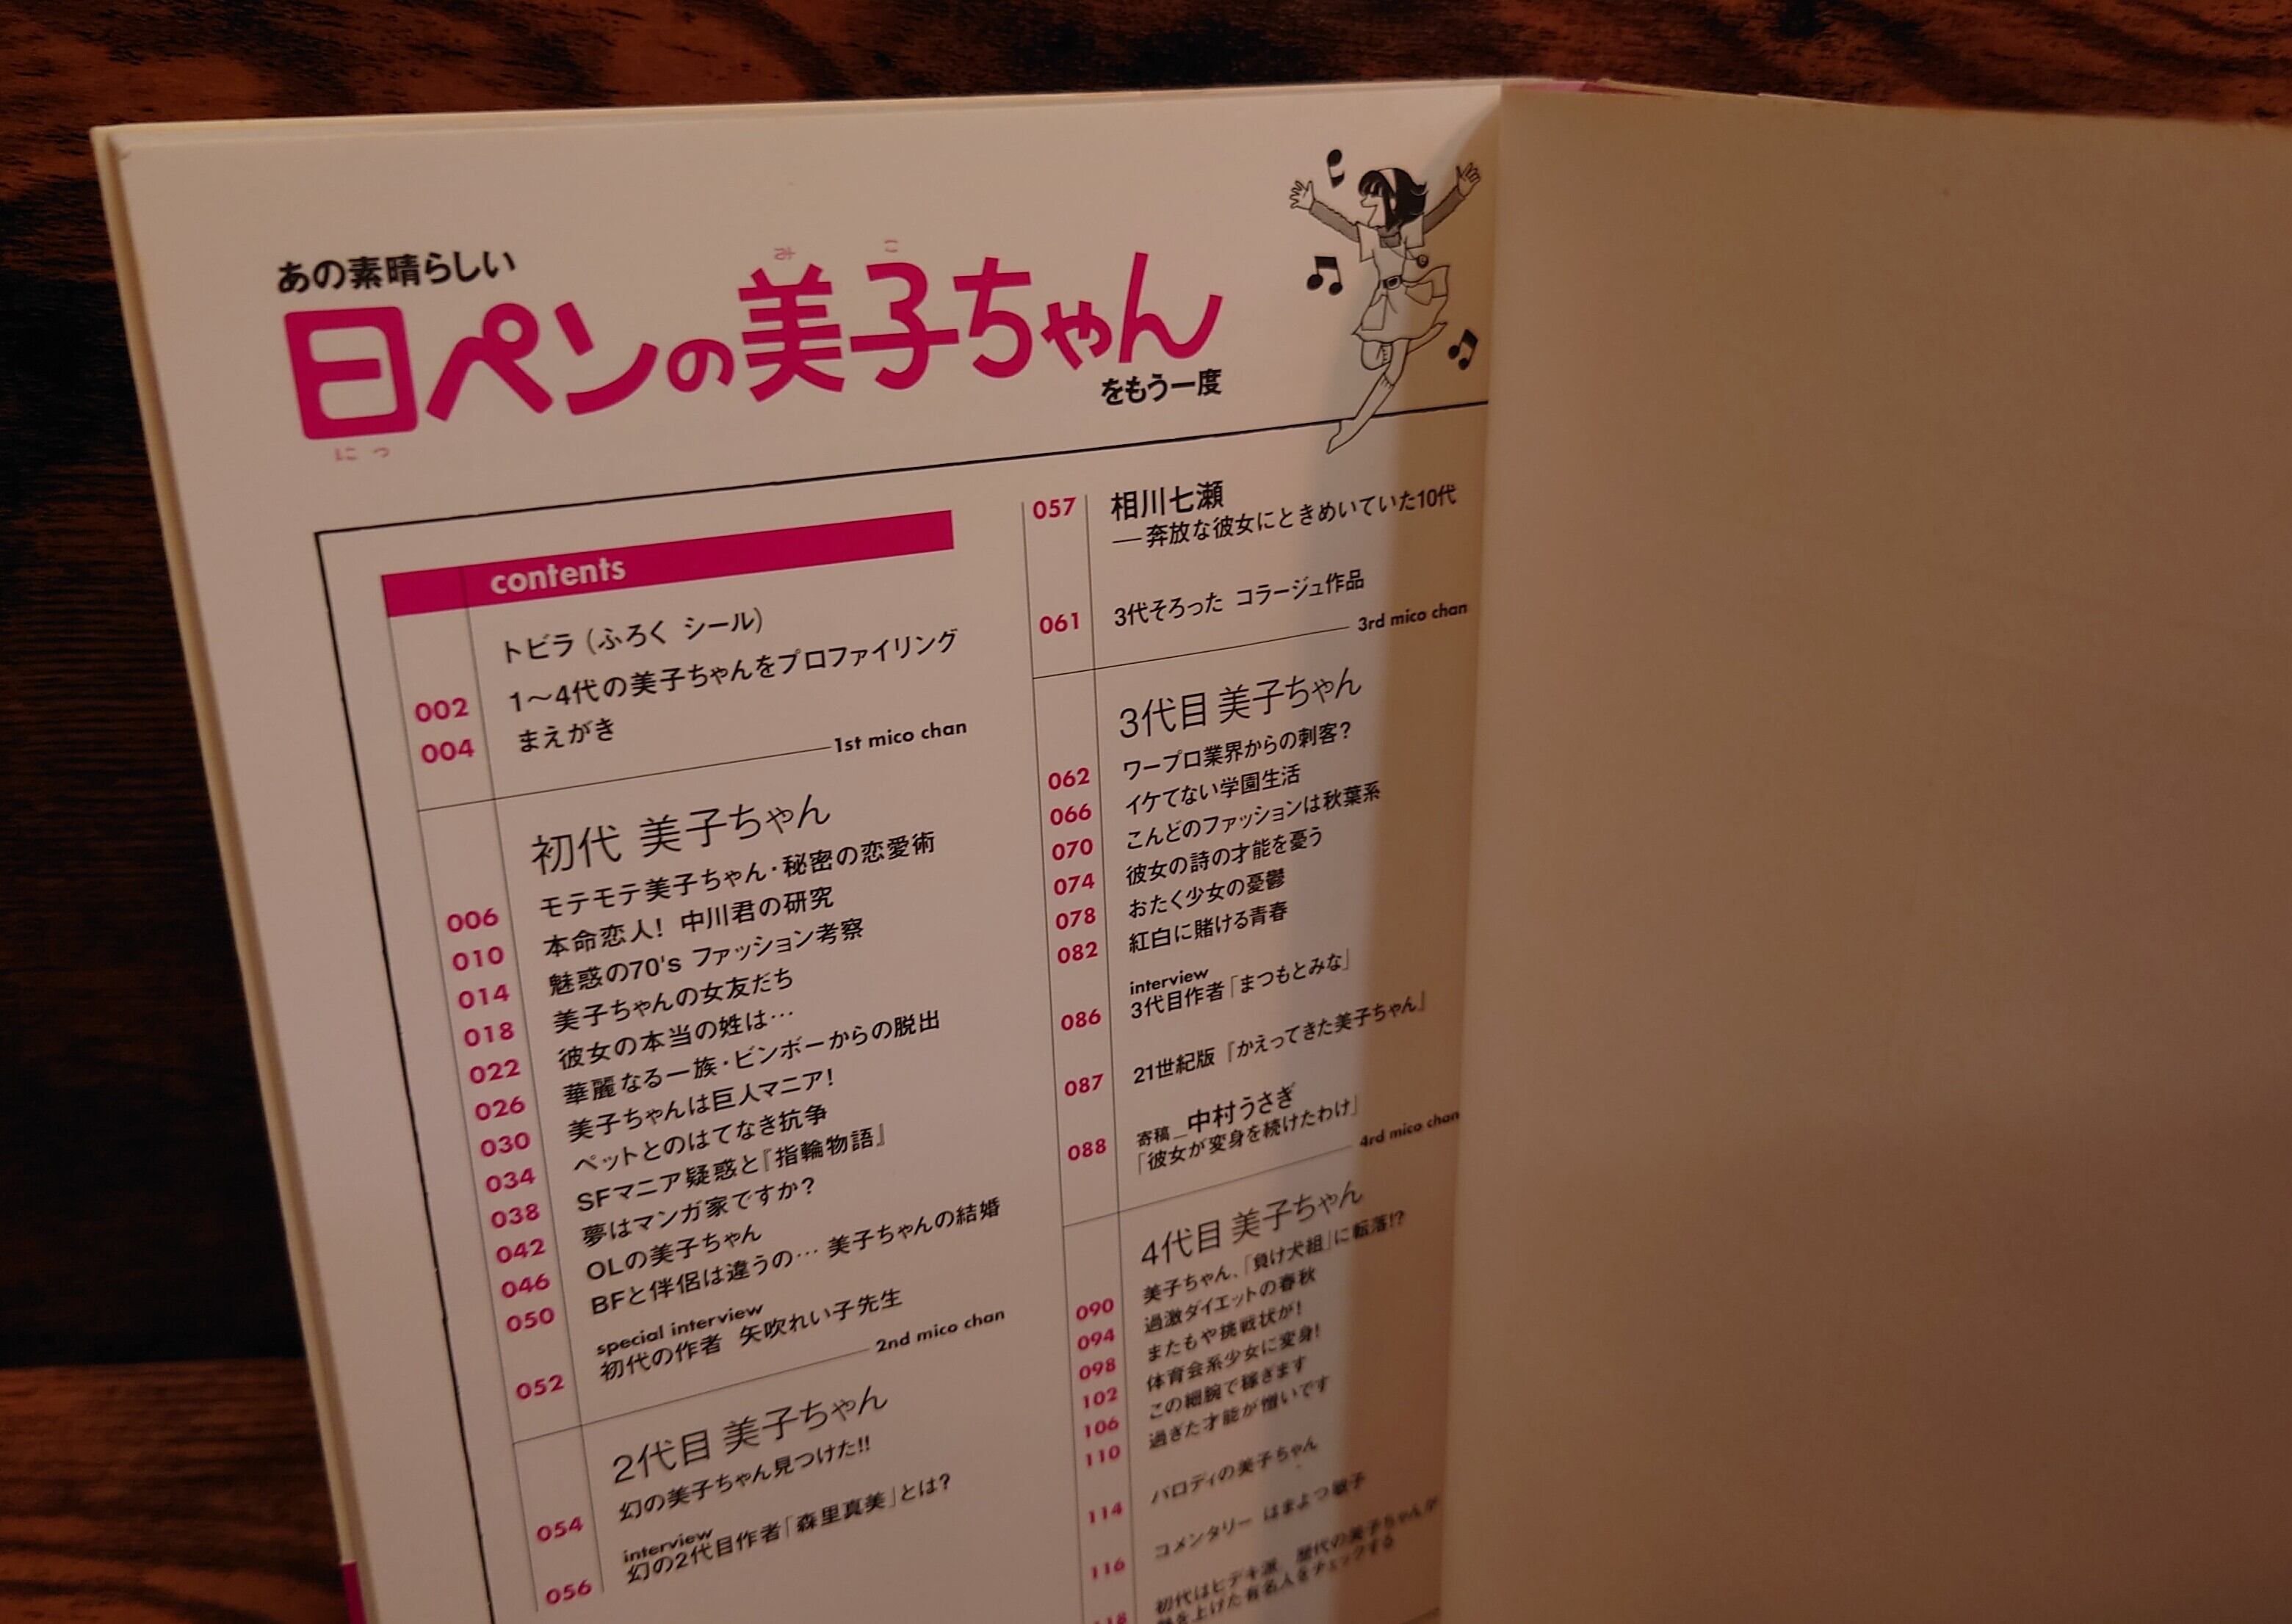 あの素晴らしい
日ペンの美子ちゃん
み こ
にっ
をもう一度
contents
トビラ（ふろく シール）
002 1〜4代の美子ちゃんをプロファイリング
004 まえがき
1st mico chan
初代 美子ちゃん
006 モテモテ美子ちゃん・秘密の恋愛術
010 本命恋人! 中川君の研究
014 魅惑の70's ファッション考察
018 美子ちゃんの女友だち
022 彼女の本当の姓は…
026 華麗なる一族・ビンボーからの脱出
030 美子ちゃんは巨人マニア!
034 ペットとのはてなき抗争
038 SFマニア疑惑と『指輪物語』
042 夢はマンガ家ですか?
046 OLの美子ちゃん
050 BFと伴侶は違うの… 美子ちゃんの結婚
special interview
052 初代の作者 矢吹れい子先生
2nd mico chan
2代目 美子ちゃん
054 幻の美子ちゃん見つけた!!
interview
056 幻の2代目作者「森里真美」とは?
057 相川七瀬
―奔放な彼女にときめいていた10代
061 3代そろった コラージュ作品
3rd mico chan
3代目 美子ちゃん
062 ワープロ業界からの刺客?
066 イケてない学園生活
070 こんどのファッションは秋葉系
074 彼女の詩の才能を憂う
078 おたく少女の憂鬱
082 紅白に賭ける青春
interview
086 3代目作者「まつもとみな」
087 21世紀版『かえってきた美子ちゃん』
088 寄稿_中村うさぎ
「彼女が変身を続けたわけ」
4rd mico chan
4代目 美子ちゃん
090 美子ちゃん、「負け犬組」に転落!?
094 過激ダイエットの春秋
098 またもや挑戦状が!
102 体育会系少女に変身!
106 この細腕で稼ぎます
110 過ぎた才能が憎いです
114 パロディの美子ちゃん
116 コメンタリー はまよつ敏子
118 初代はヒデキ派、歴代の美子ちゃんが
熱を上げた有名人をチェックする